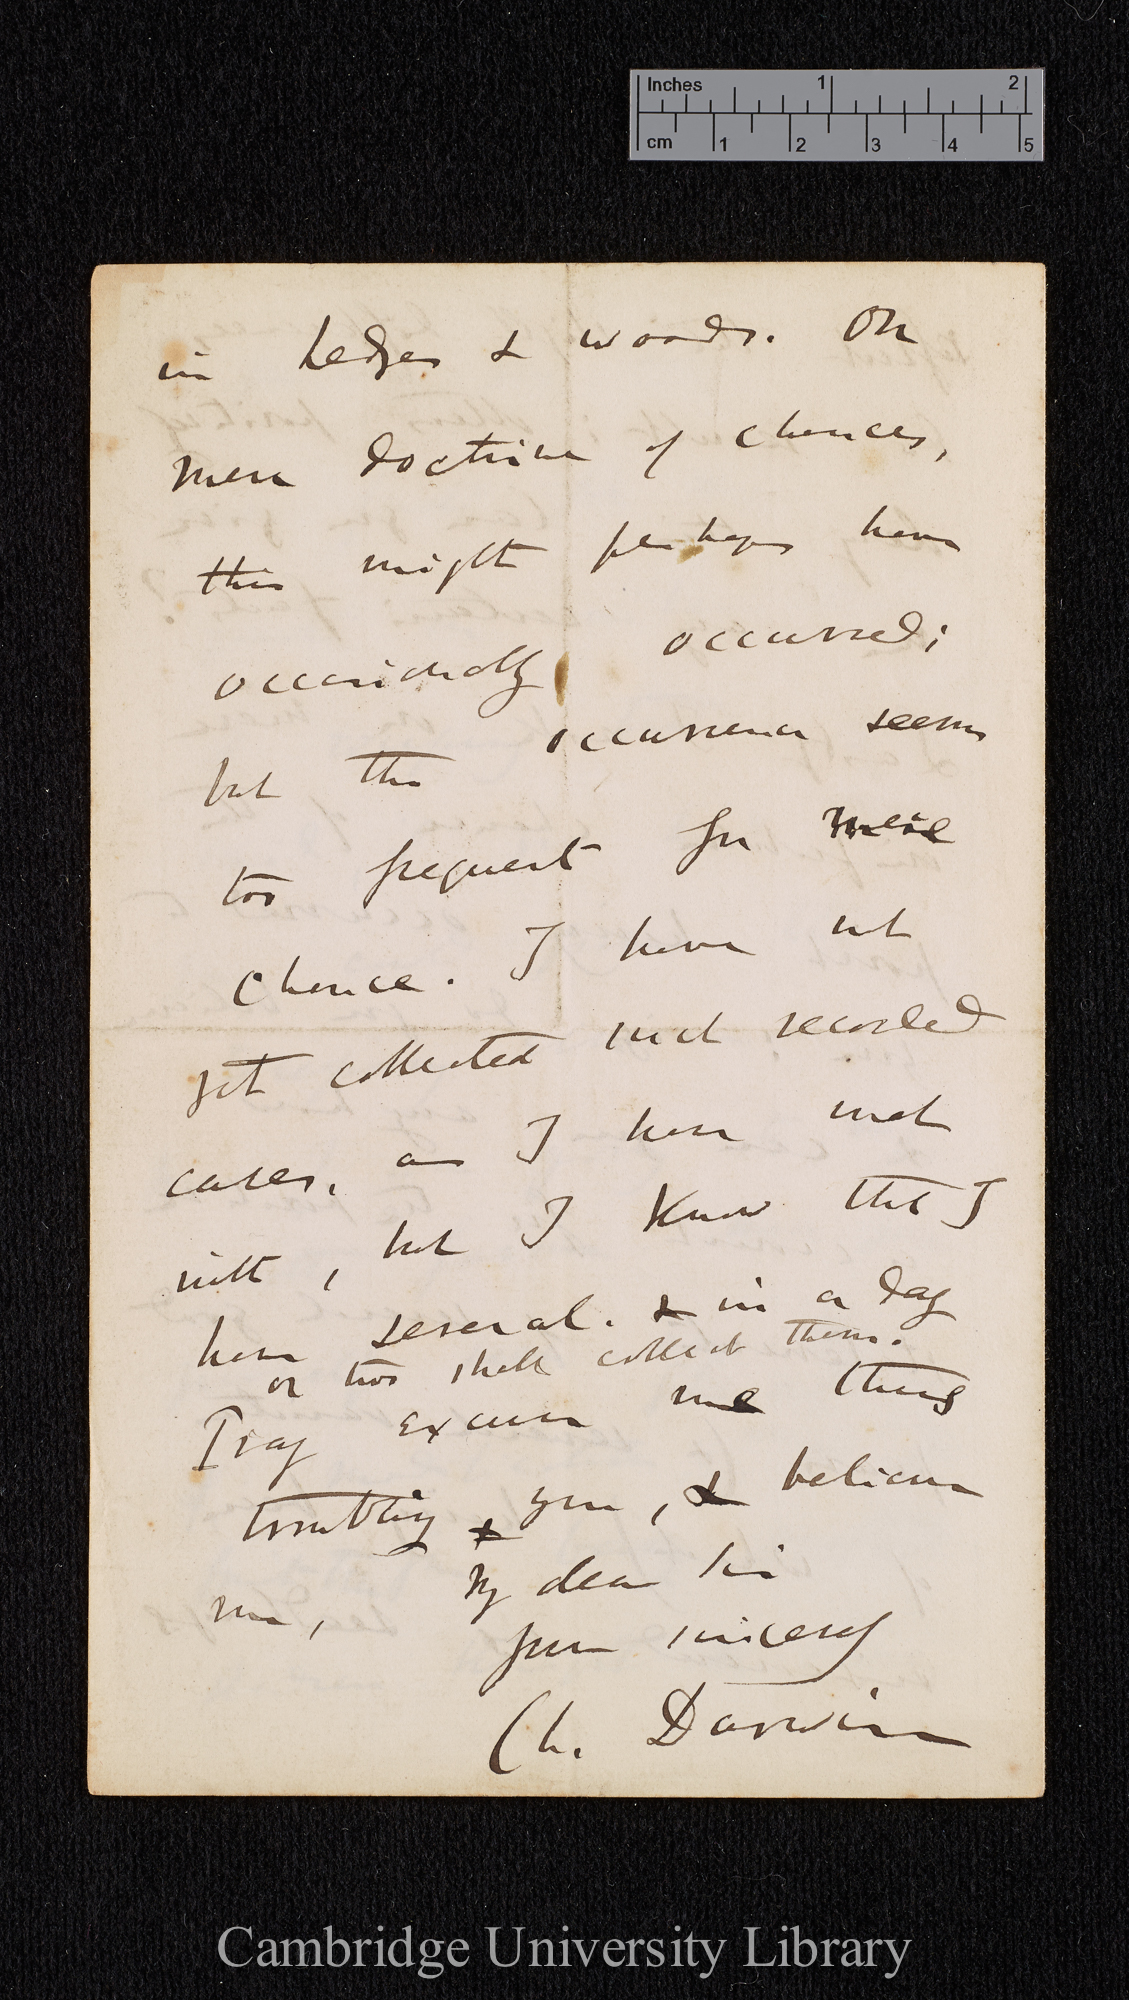 Inches 1 2
cm 1 2 3 4 5
in hedges & woods. On
mere doctrine of chances,
this might perhaps have
occasionally occurred;
but the occurrence seems
too frequent for mere
chance. I have not
yet collected such recorded
cases, as I have met
with, but I know that I
have several. & in a day
or two shall collect them.
Pray excuse me thus
troubling you, & believe
me, My dear Sir
Your sincerely
Ch. Darwin
Cambridge University Library